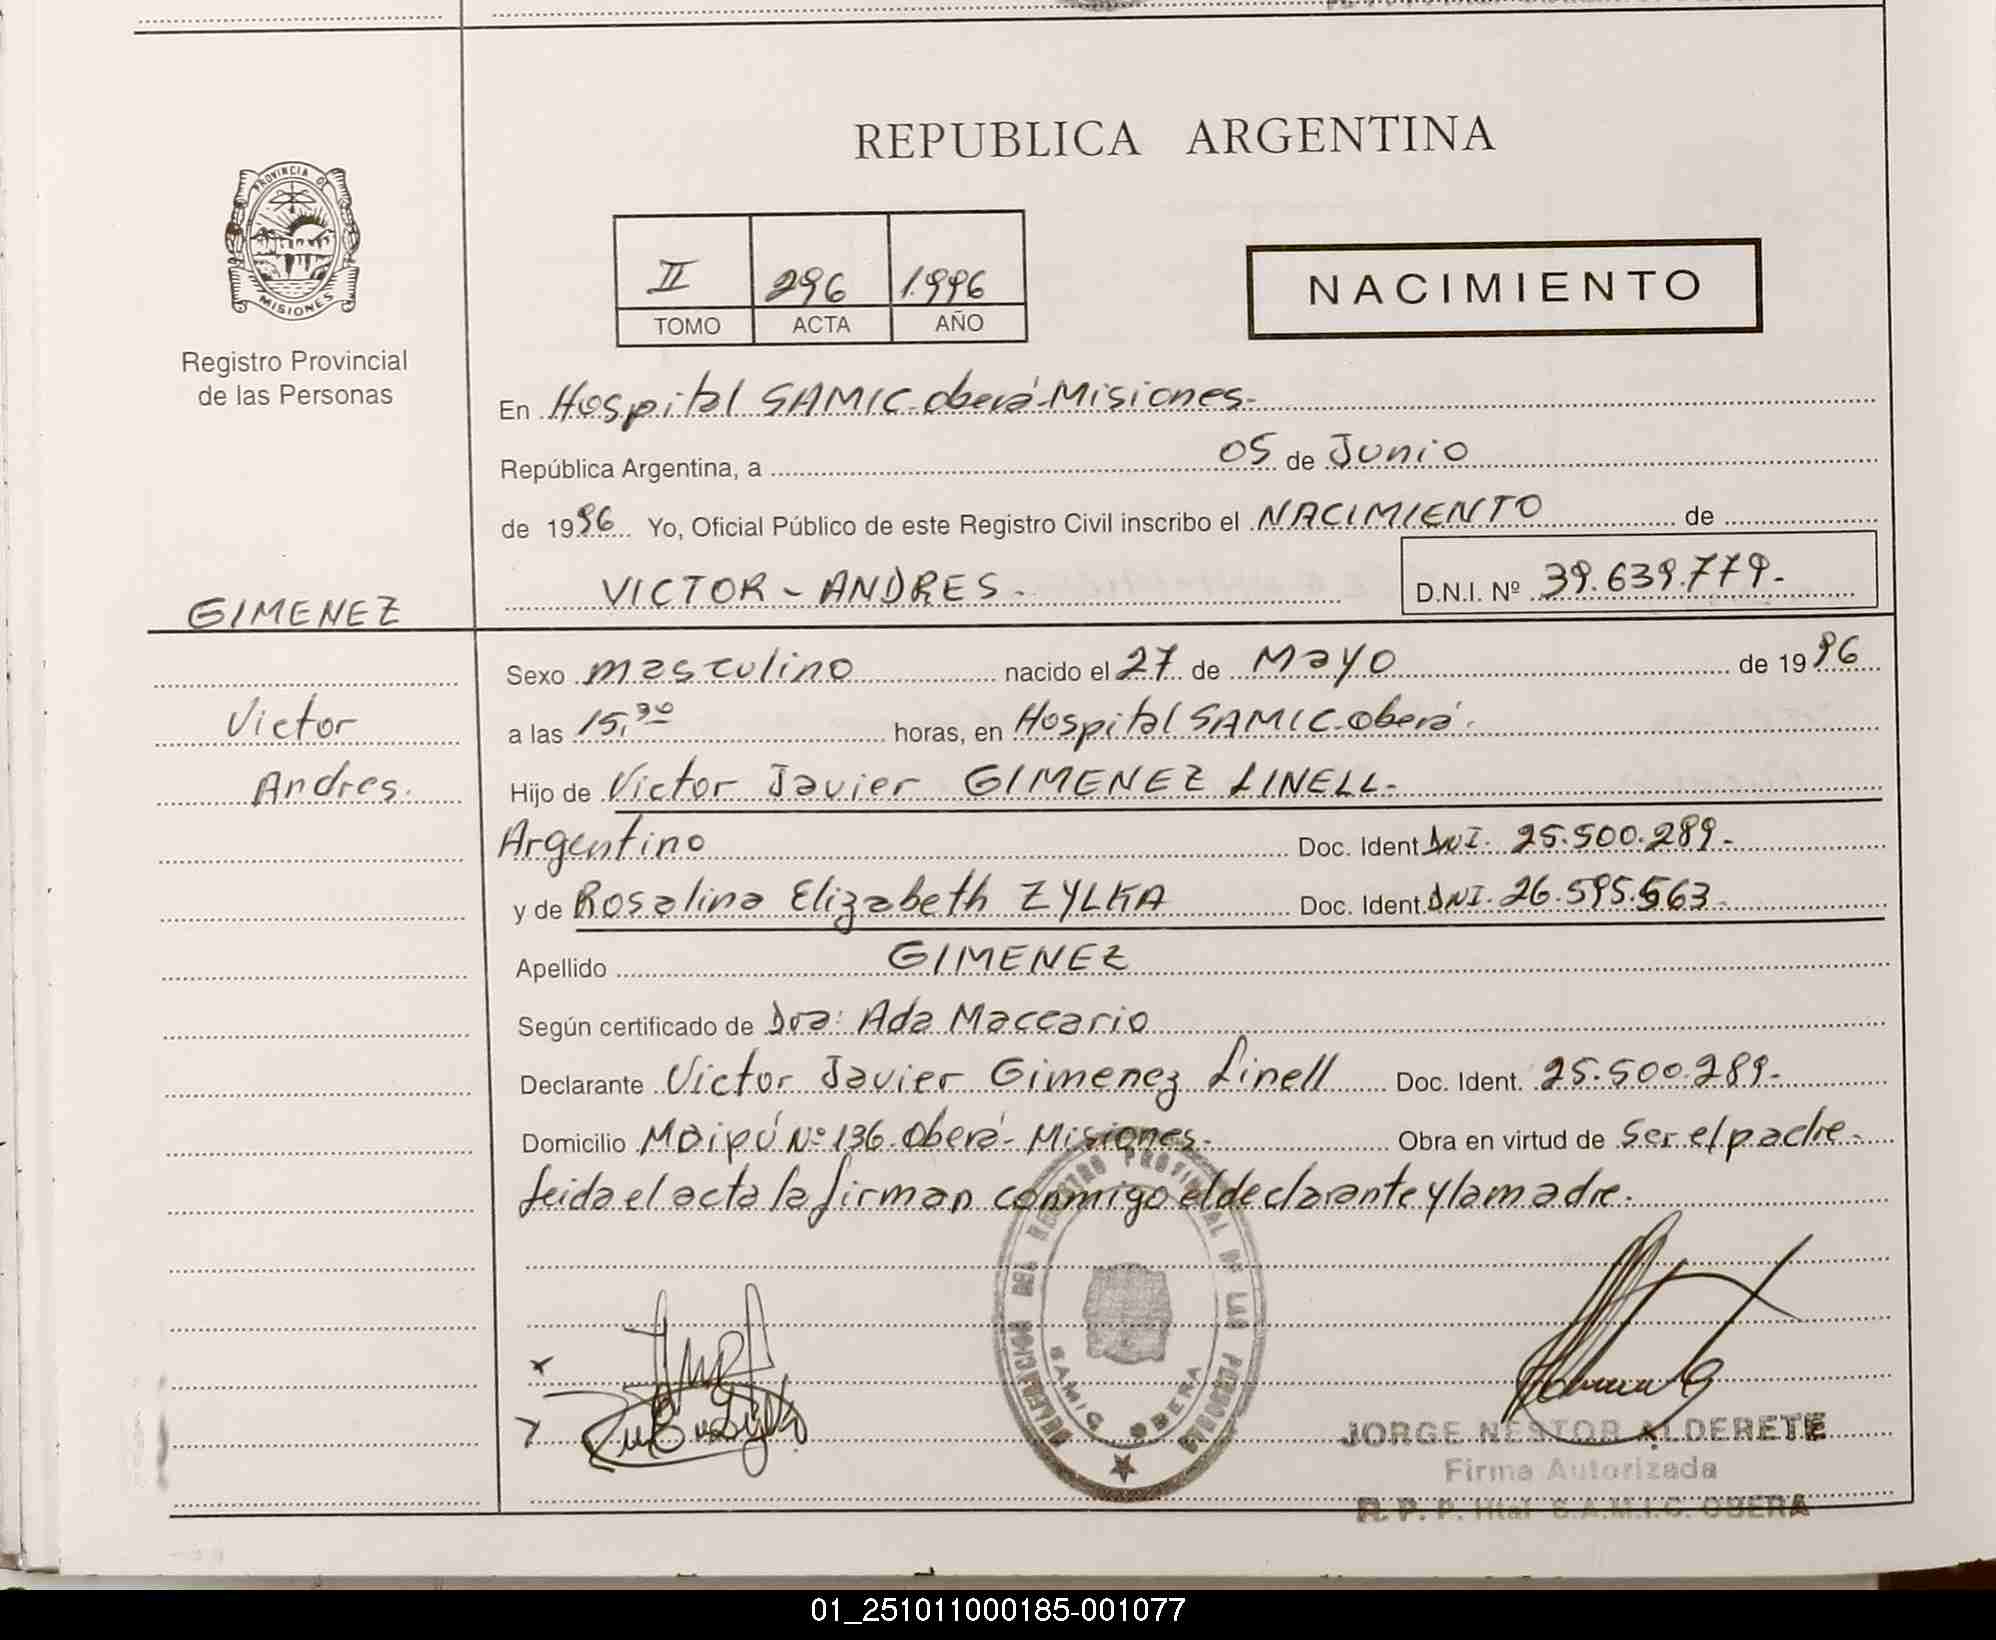 PROVINCIA DE
MISIONES
Registro Provincial
de las Personas
REPUBLICA ARGENTINA
II 296 1996
TOMO ACTA AÑO
NACIMIENTO
En Hospital SAMIC-oberá-Misiones-
República Argentina, a 05 de Junio
de 1996 Yo, Oficial Público de este Registro Civil inscribo el NACIMIENTO de
VICTOR - ANDRES - D.N.I. Nº 39.639.779-
GIMENEZ
Victor
Andres.
Sexo masculino nacido el 27 de Mayo de 1996
a las 15,30 horas, en Hospital SAMIC-oberá.
Hijo de Victor Javier GIMENEZ LINELL-
Argentino Doc. Ident DNI. 25.500.289-
y de Rosalina Elizabeth ZYLKA Doc. Ident. DNI. 26.595.563-
Apellido GIMENEZ
Según certificado de Dra: Ada Maccario
Declarante Victor Javier Gimenez Linell Doc. Ident. 25.500.289-
Domicilio Maipú Nº 136-Oberá- Misiones- Obra en virtud de Ser el padre-
Leida el acta la firman conmigo el declarante y la madre-
DEL REGISTRO PROVINCIAL DE LAS PERSONAS
SAMIC OBERA
JORGE NESTOR ALDERETE
Firma Autorizada
R. P. P. Htal S.A.M.I.C. OBERA
01_251011000185-001077